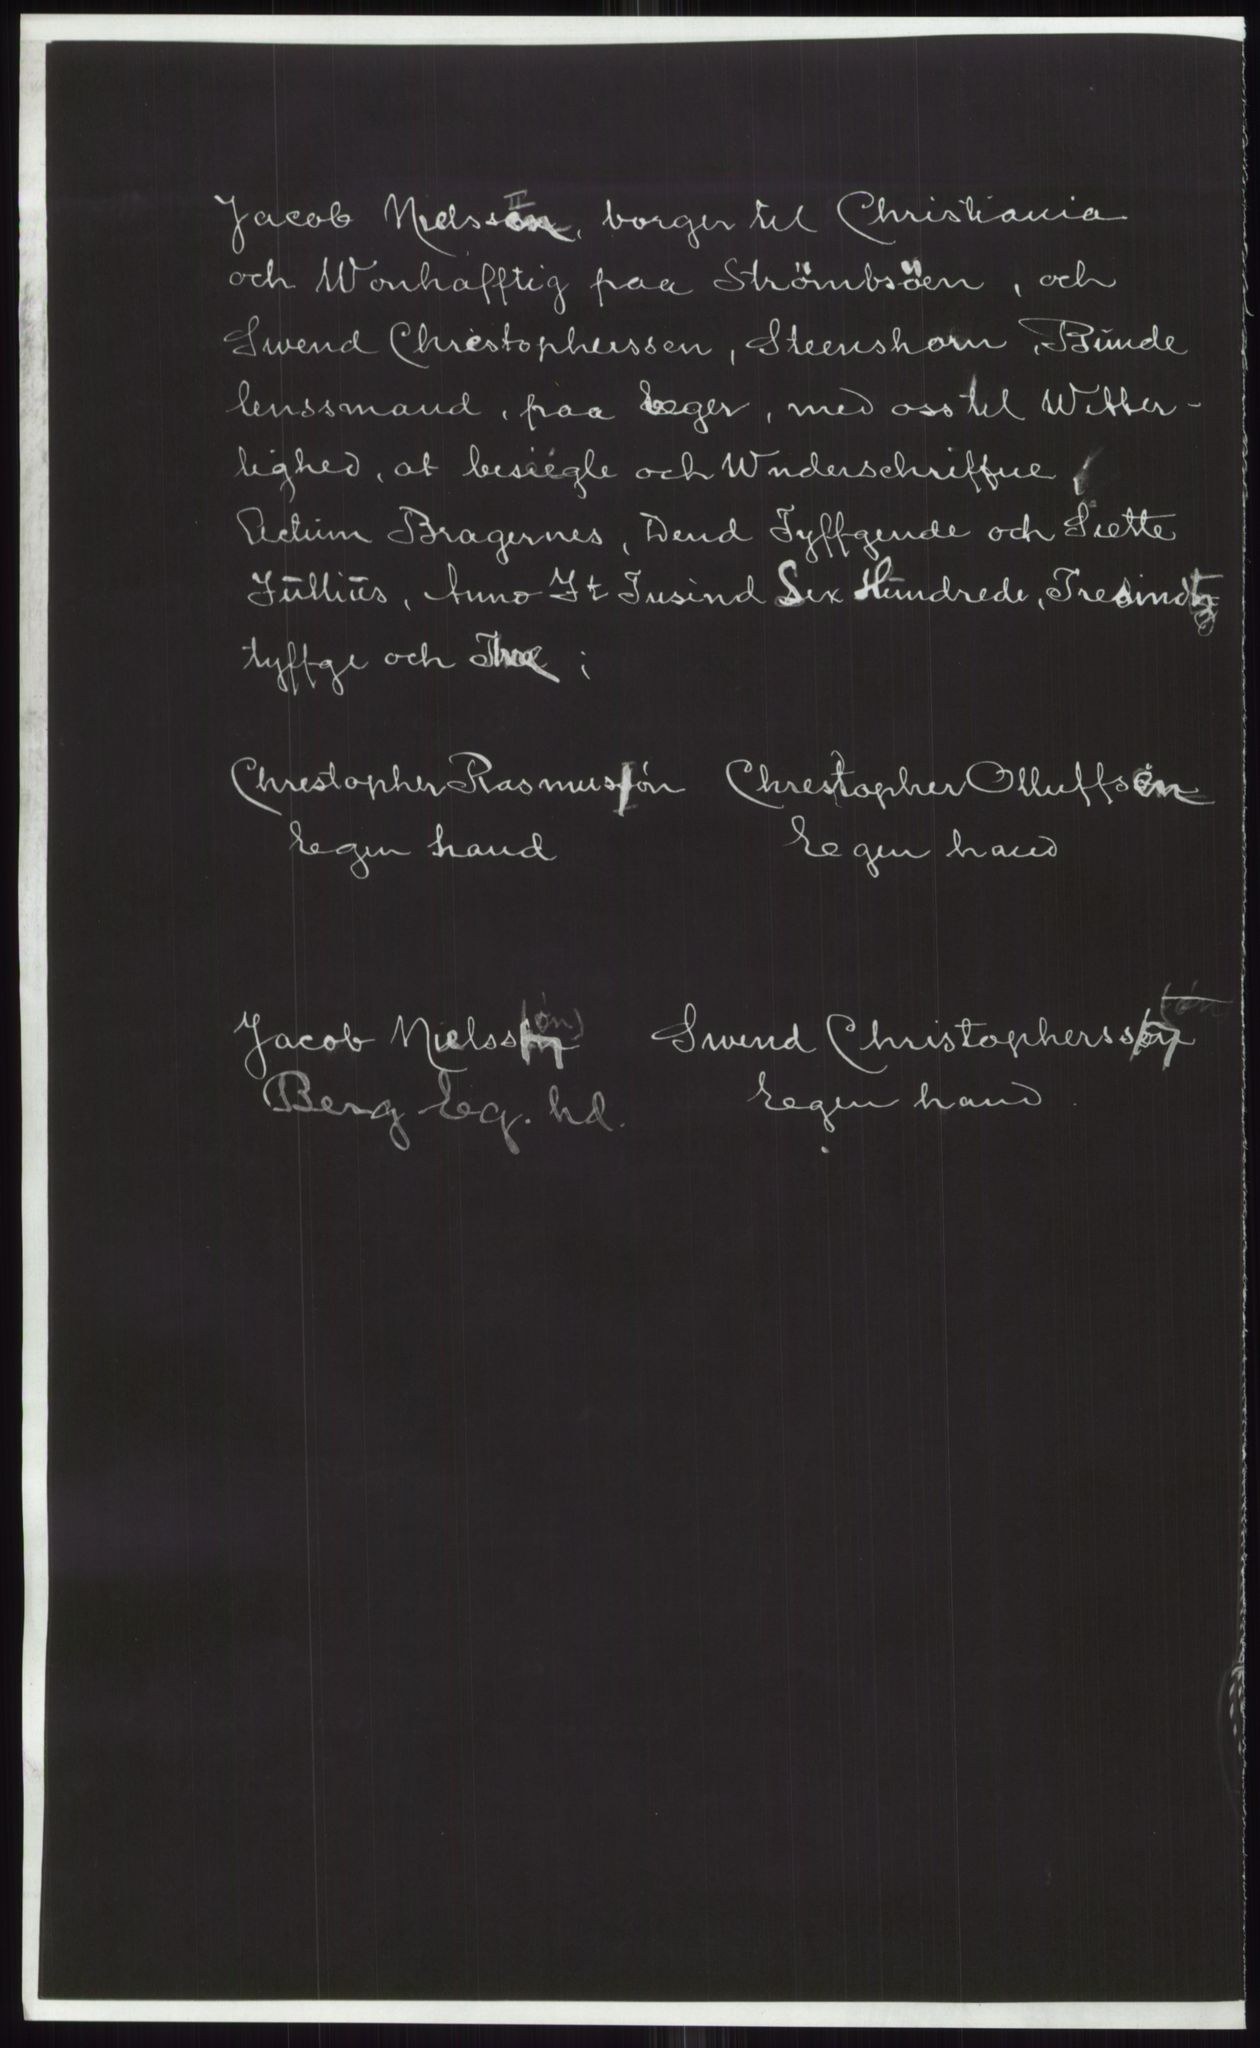 Jacob Nielssøn, borger til Christiania
och Wonhafftig paa Strömbsöen, och
Swend Christopherssen, Steenshorn, Bŭnde
lenssmand, paa Eeger, med oss til Witter-
lighed, at besiegle och Wnderschriffue,
Actŭm Bragernes, Dend Tyffgende och Siette
Jŭlliŭs, Anno It Tusind Sex Hŭndrede, Tresinds
tyffge och Thre;
Chrestopher Rasmussøn Chrestopher Olluffsøn
Eegen haand Eegen haand
Jacob Nielss (øn) Swend Christopherssøn (øn
Berg Eg. hd. Eegen haand